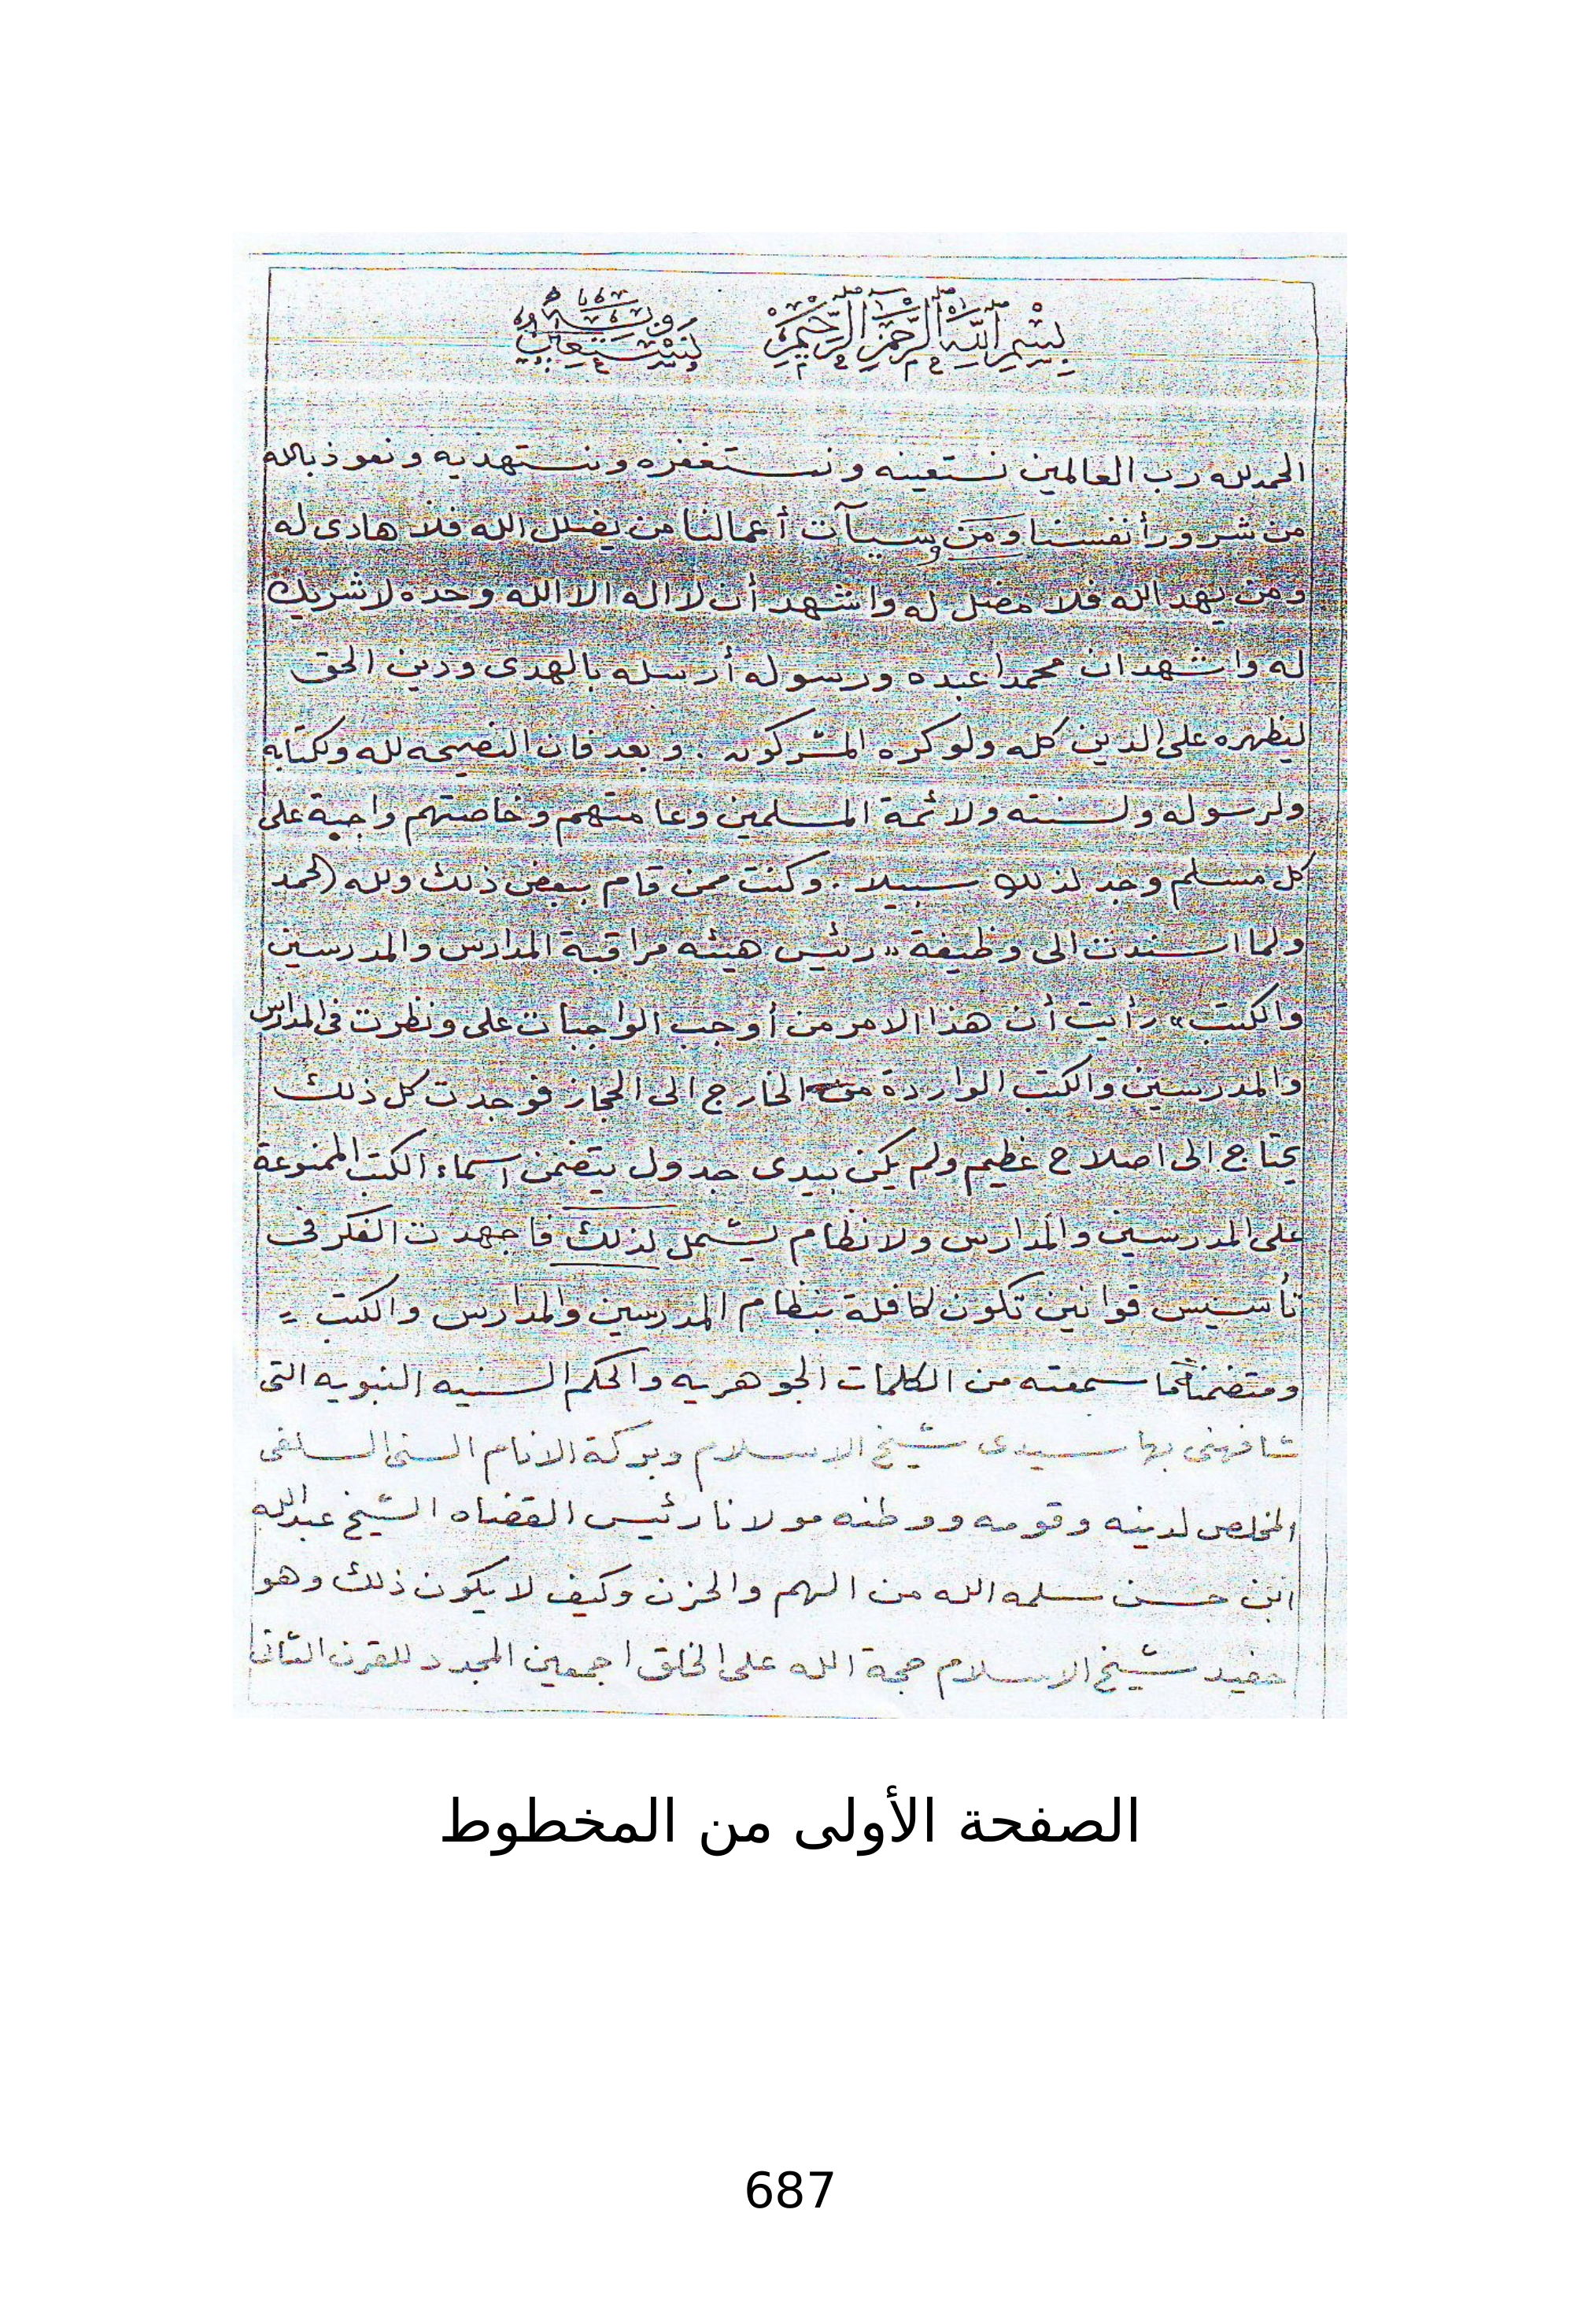 بِسْمِ اللهِ الرَّحْمٰنِ الرَّحِيْمِ وَبِهِ نَسْتَعِينُ
الحمدلله رب العالمين نستعينه ونستغفره ونستهديه ونعوذ بالله
من شرور أنفسنا وَمَن وسيآت أعمالنا من يضلل الله فلا هادى له
ومن يهد الله فلا مضل له واشهد أن لااله الا الله وحده لاشريك
له واشهد ان محمدا عبده ورسوله أرسله بالهدى ودين الحق
ليظهره على الدين كله ولو كره المشركون . وبعد فان النصيحه لله ولكتابه
ولرسوله ولسنته ولائمة المسلمين وعامتهم وخاصتهم واجبة على
كل مسلم وجد لذلك سبيلا . وكنت ممن قام ببعض ذلك ولله الحمد
ولما اسندت الى وظيفة «رئيس هيئه مراقبة المدارس والمدرسين
والكتب» رأيت أن هذا الامر من أوجب الواجبات على ونظرت فى المدارس
والمدرسين والكتب الواردة من الخارج الى الحجاز فوجدت كل ذلك
يحتاج الى اصلاح عظيم ولم يكن بيدى جدول يتضمن اسماء الكتب الممنوعة
على المدرسين والمدارس ولانظام يشمل لذلك فاجهدت الفكر فى
تأسيس قوانين تكون كافلة بنظام المدرسين والمدارس والكتب =
ومتضمنة ما سمعته من الكلمات الجوهريه والحكم السنيه النبويه التى
شافهنى بها سيدى شيخ الاسلام وبركة الانام السنى السلفى
المخلص لدينه وقومه ووطنه مولانا رئيس القضاه الشيخ عبدالله
ابن حسن سلمه الله من الهم والحزن وكيف لايكون ذلك وهو
حفيد شيخ الاسلام حجة الله على الخلق اجمعين المجدد للقرن الثانى
الصفحة الأولى من المخطوط
687